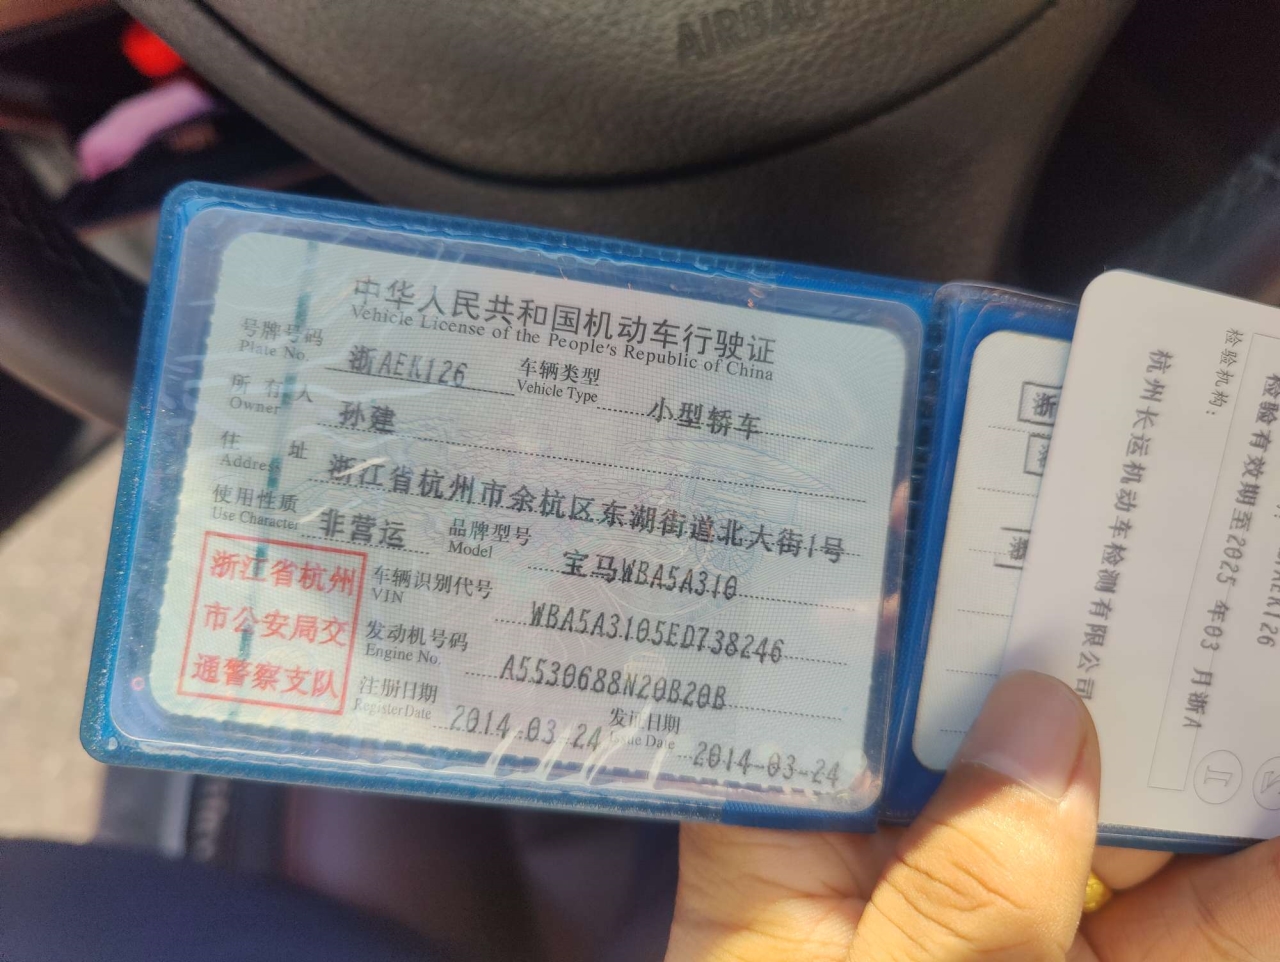 AIRBAG
中华人民共和国机动车行驶证
Vehicle License of the People's Republic of China
号牌号码
Plate No.
浙AEK126
车辆类型
Vehicle Type
小型轿车
所有人
Owner
孙建
住址
Address
浙江省杭州市余杭区东湖街道北大街1号
使用性质
Use Character
非营运
品牌型号
Model
宝马WBA5A310
浙江省杭州
市公安局交
通警察支队
车辆识别代号
VIN
WBA5A3105ED738246
发动机号码
Engine No.
A5530688N20B20B
注册日期
Register Date
2014-03-24
发证日期
Issue Date
2014-03-24
浙
浙
检验有效期至2025年03月浙A
检验机构：
杭州长运机动车检测有限公司